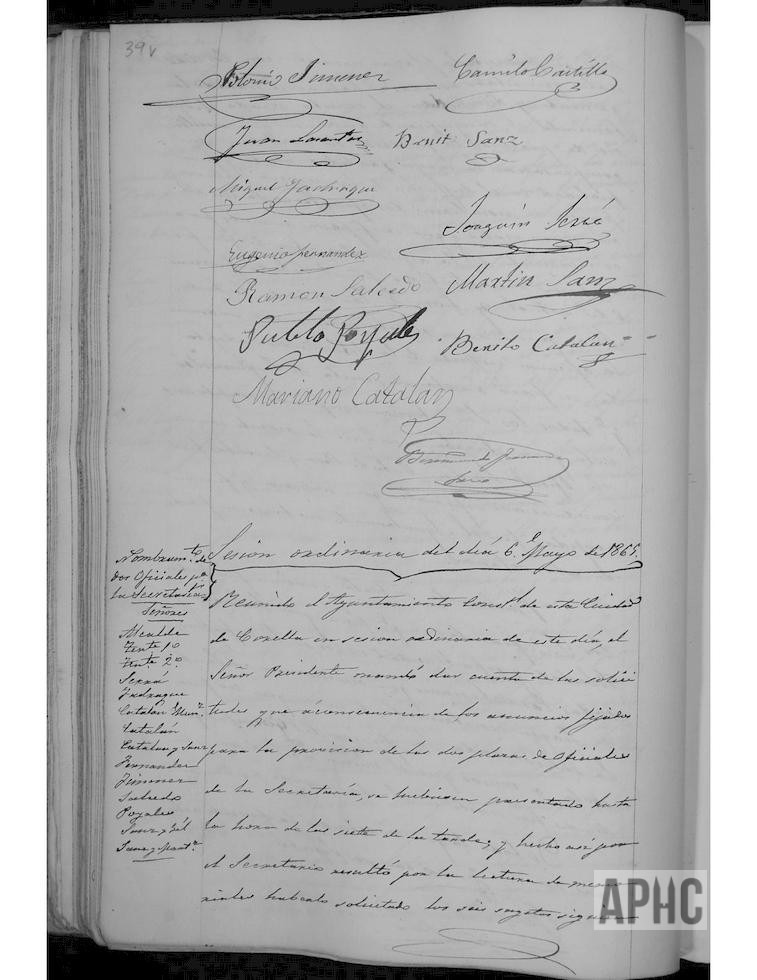 39v
Antonio Jimenez Camilo Castillo
Juan
Benit Sanz
Miguel Jadraque
Joaquin
Eugenio Fernandez
Ramon Salcedo Martin Sanz
Pablo Poyales Benito Catalan
Mariano Catalan
Sesion ordinaria del dia 6 Mayo de 1865.
Nombramto. de
dos Oficiales pa.
la Secretaria
Señores
Alcalde
Tente 1o
Tente. 2o.
Serrá
Jadraque
Catalan y Muñz.
Catalán
Catalan y Sanz
Fernandez
Jimenez
Salcedo
Poyales
Sanz y Gil
Sanz y Mart.
Reunido el Ayuntamiento Const.l de esta Ciudad
de Corella en sesion ordinaria de este dia, el
Señor Presidente mandó dar cuenta de las solici
tudes que á consecuencia de los anuncios fijados
para la provision de las dos plazas de Oficiales
de la Secretaría, se hubiesen presentado hasta
la hora de las siete de la tarde; y hecho así por
el Secretario resultó por la lectura de memo
riales haberlo solicitado los seis sugetos siguien
APHC